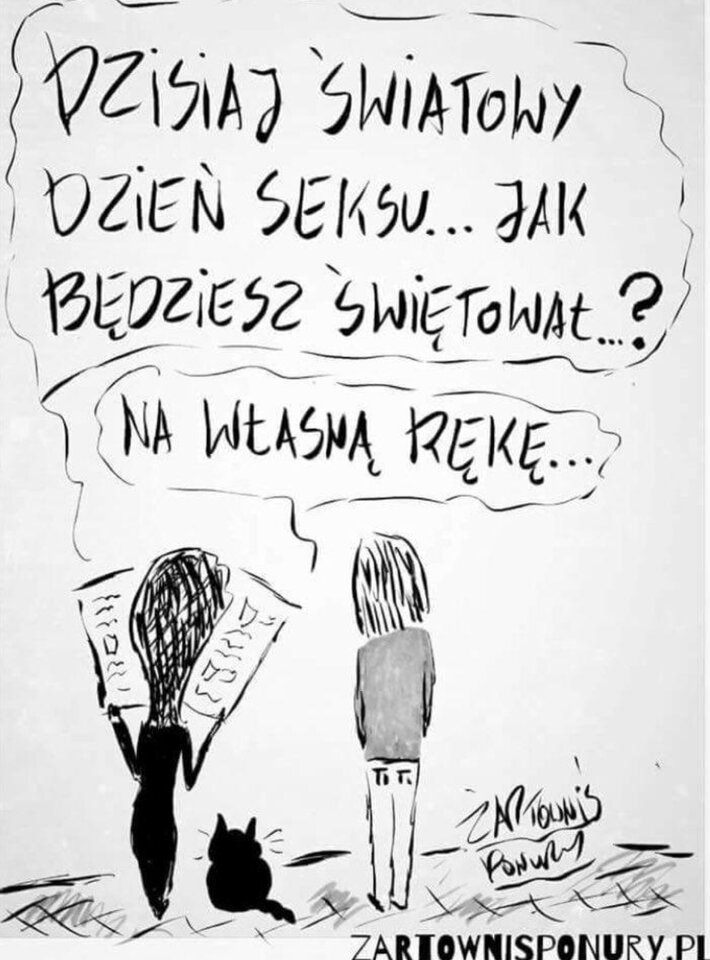 DZISIAJ ŚWIATOWY
DZIEŃ SEKSU... JAK
BĘDZIESZ ŚWIĘTOWAŁ...?
NA WŁASNĄ RĘKĘ...
ŻARTOWNIŚ
PONURY
ZARTOWNISPONURY.PL